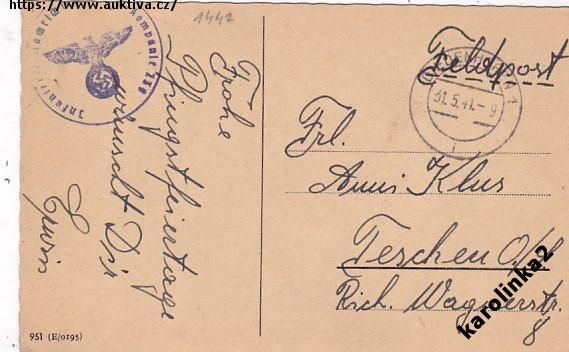 https://www.auktiva.cz/
1442
Kompanie
Frohe
Pfingstfeiertage
wünscht Dir
Feldpost
31.5.41.-9
Frl.
Anni Klus
Teschen O/
Rich. Wagnerstr.
8
951 (E/0195)
karolinka2